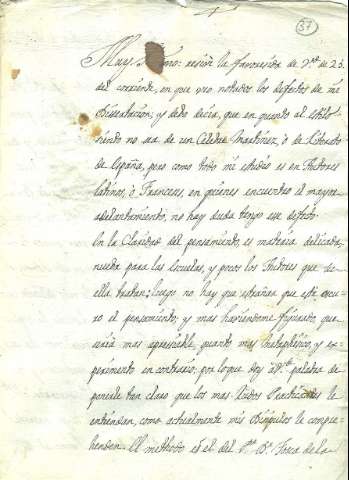 37
Muy mio: recibí la favorecida de Vmd de 23
del corriente, en que veo notados los defectos de mi
Dissertacion; y debo decir, que en quanto al estilo
siendo no sea de un Celebre Martinez, ò de Literato
de España, pero como todo mi estudio es en Authores
latinos, ò Franceses, en quienes encuentro el mayor
adelantamiento, no hay duda tengo ese defecto.
En la Claridad del pensamiento, es materia delicada,
nueba para las Escuelas, y pocos los Authores que de
ella tratan; luego no hay que estrañar que esté escu-
ro el pensamiento; y mas haviendome figurado, que
seria mas apreciable, quanto mas Metaphisico, y ex-
perimento en contrario, por lo que doy a Vmd palabra de
ponerle tan claro que los mas leidos Practicantes le
entiendan, como actualmente mis Discipulos le compre-
henden. El methodo es el del Dr. Dn. de la